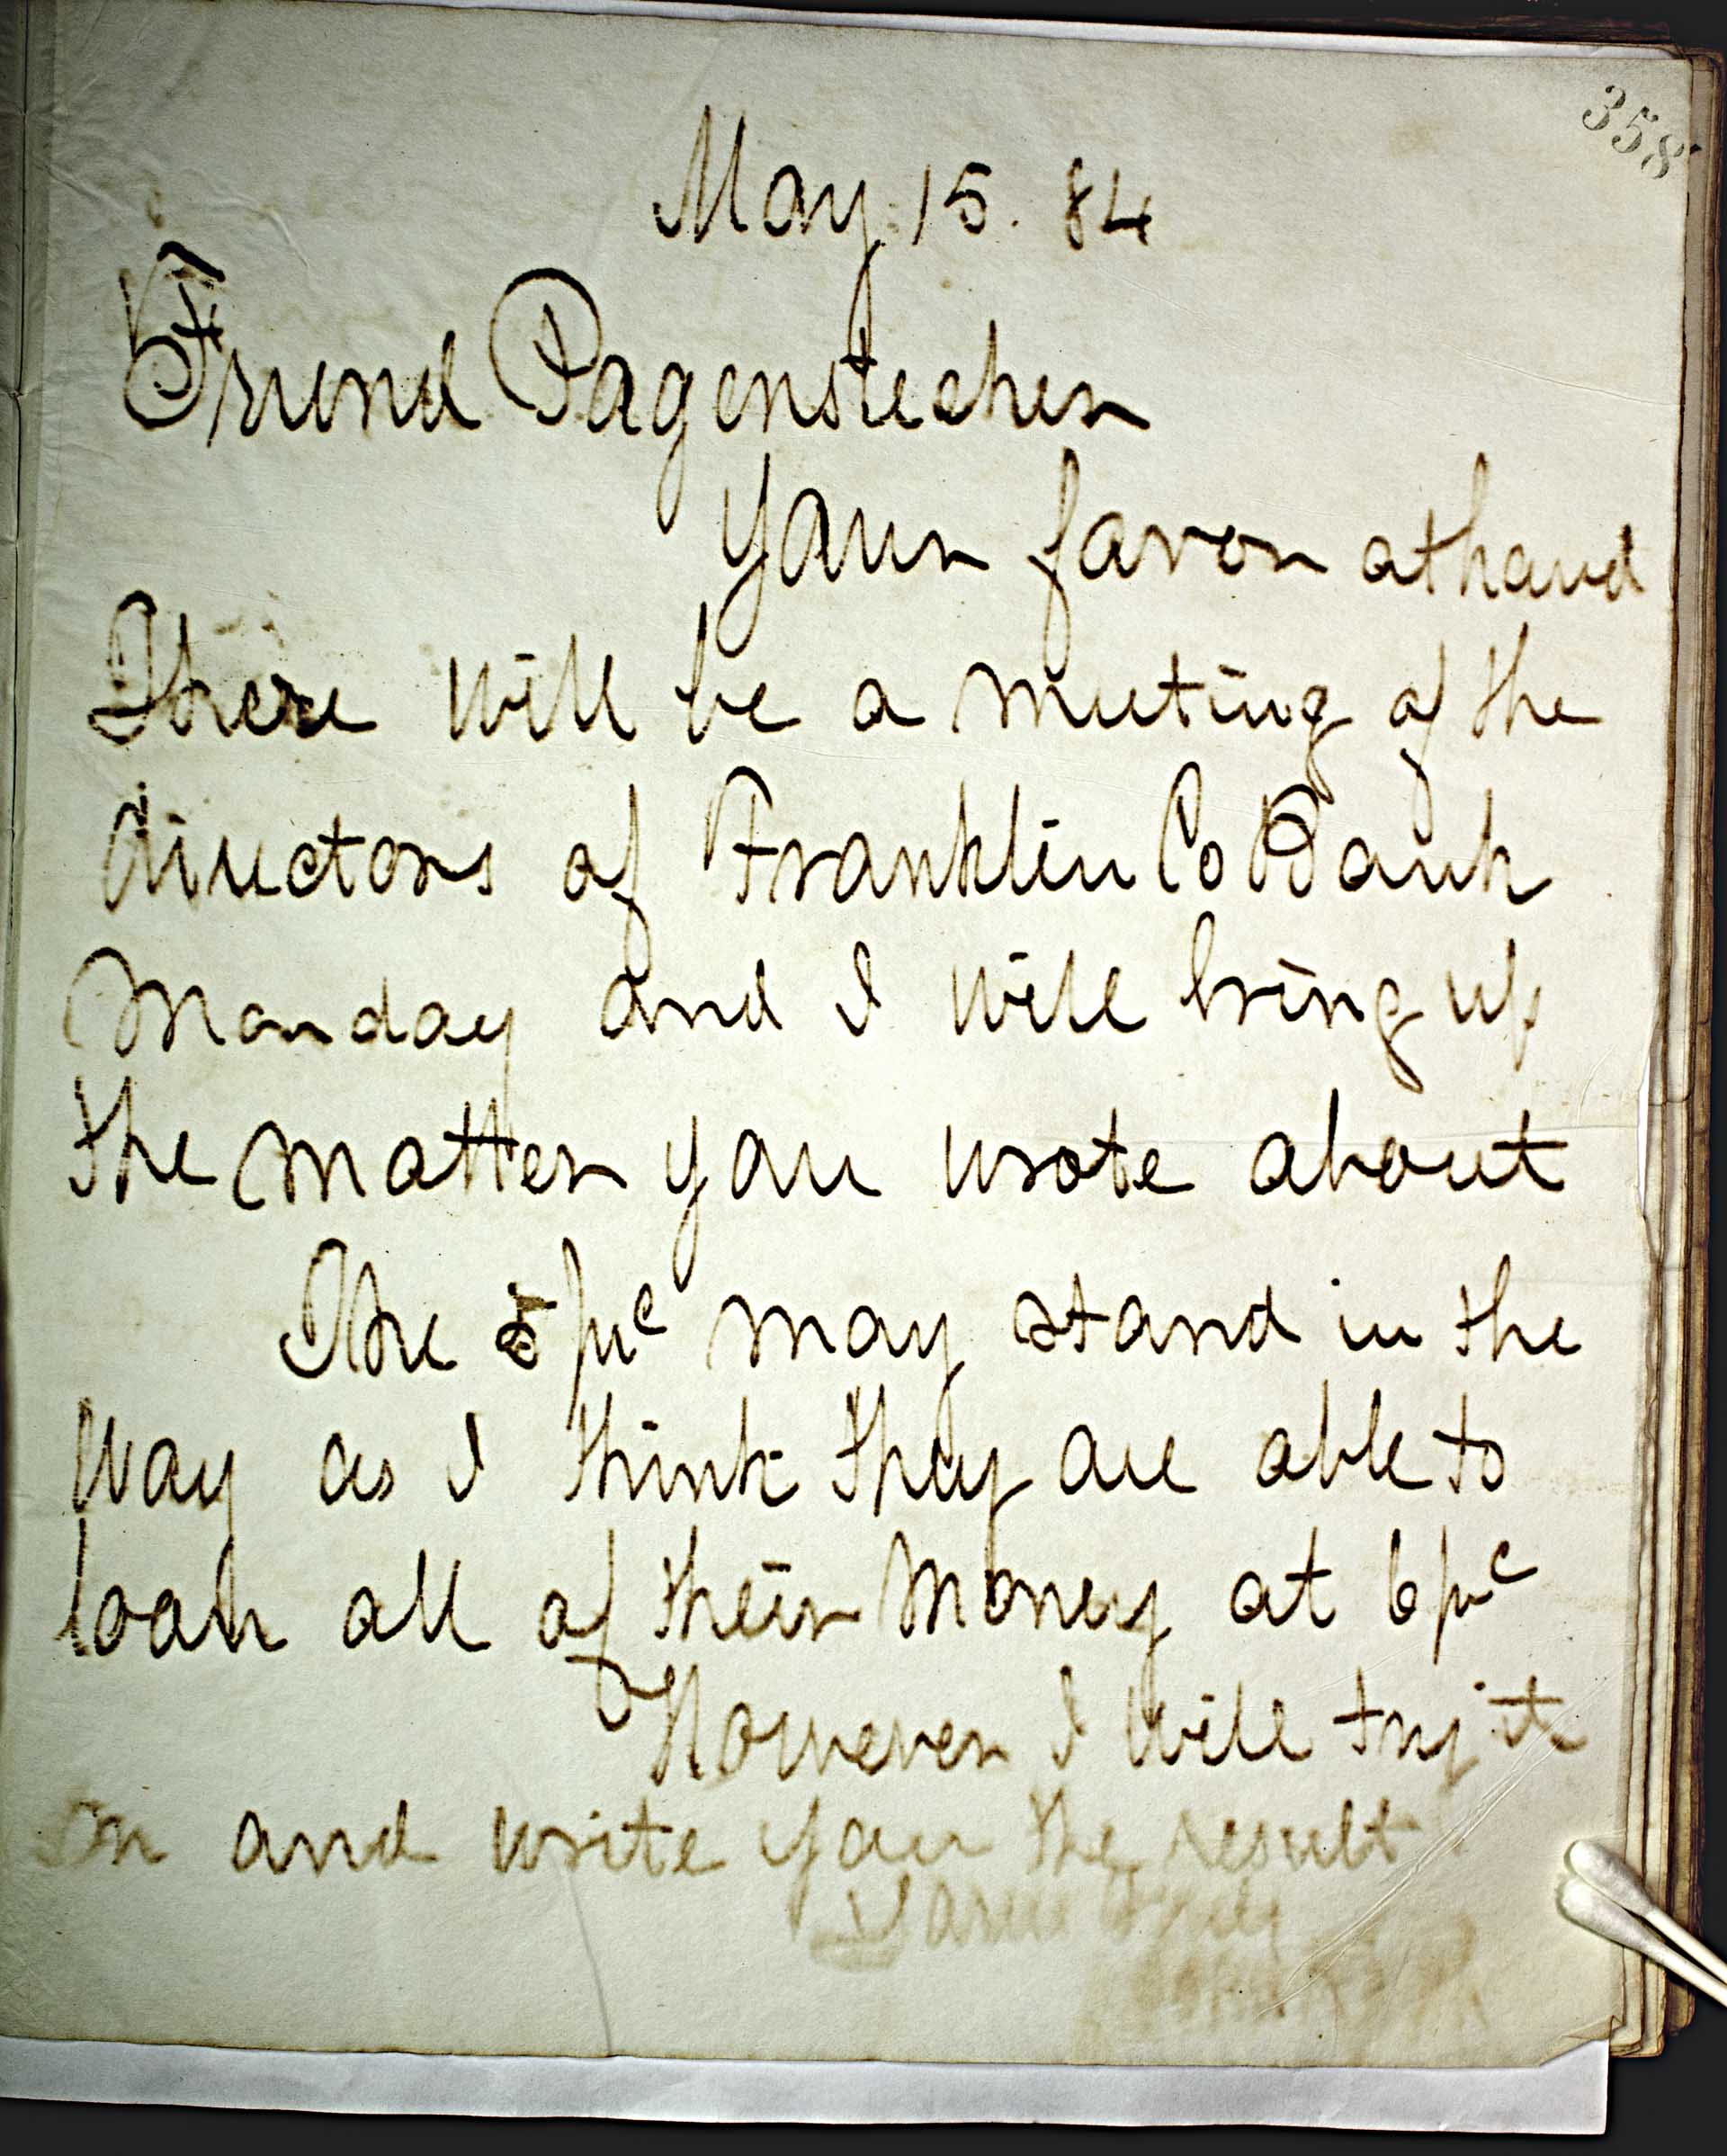 358
May 15. 84
Friend Pagenstecher
Your favor at hand
There will be a meeting of the
directors of Franklin Co Bank
Monday and I will bring up
the matter you wrote about
The 5 prc may stand in the
way as I think they are able to
loan all of their money at 6 prc
However I will try it
on and write you the result
Yours truly